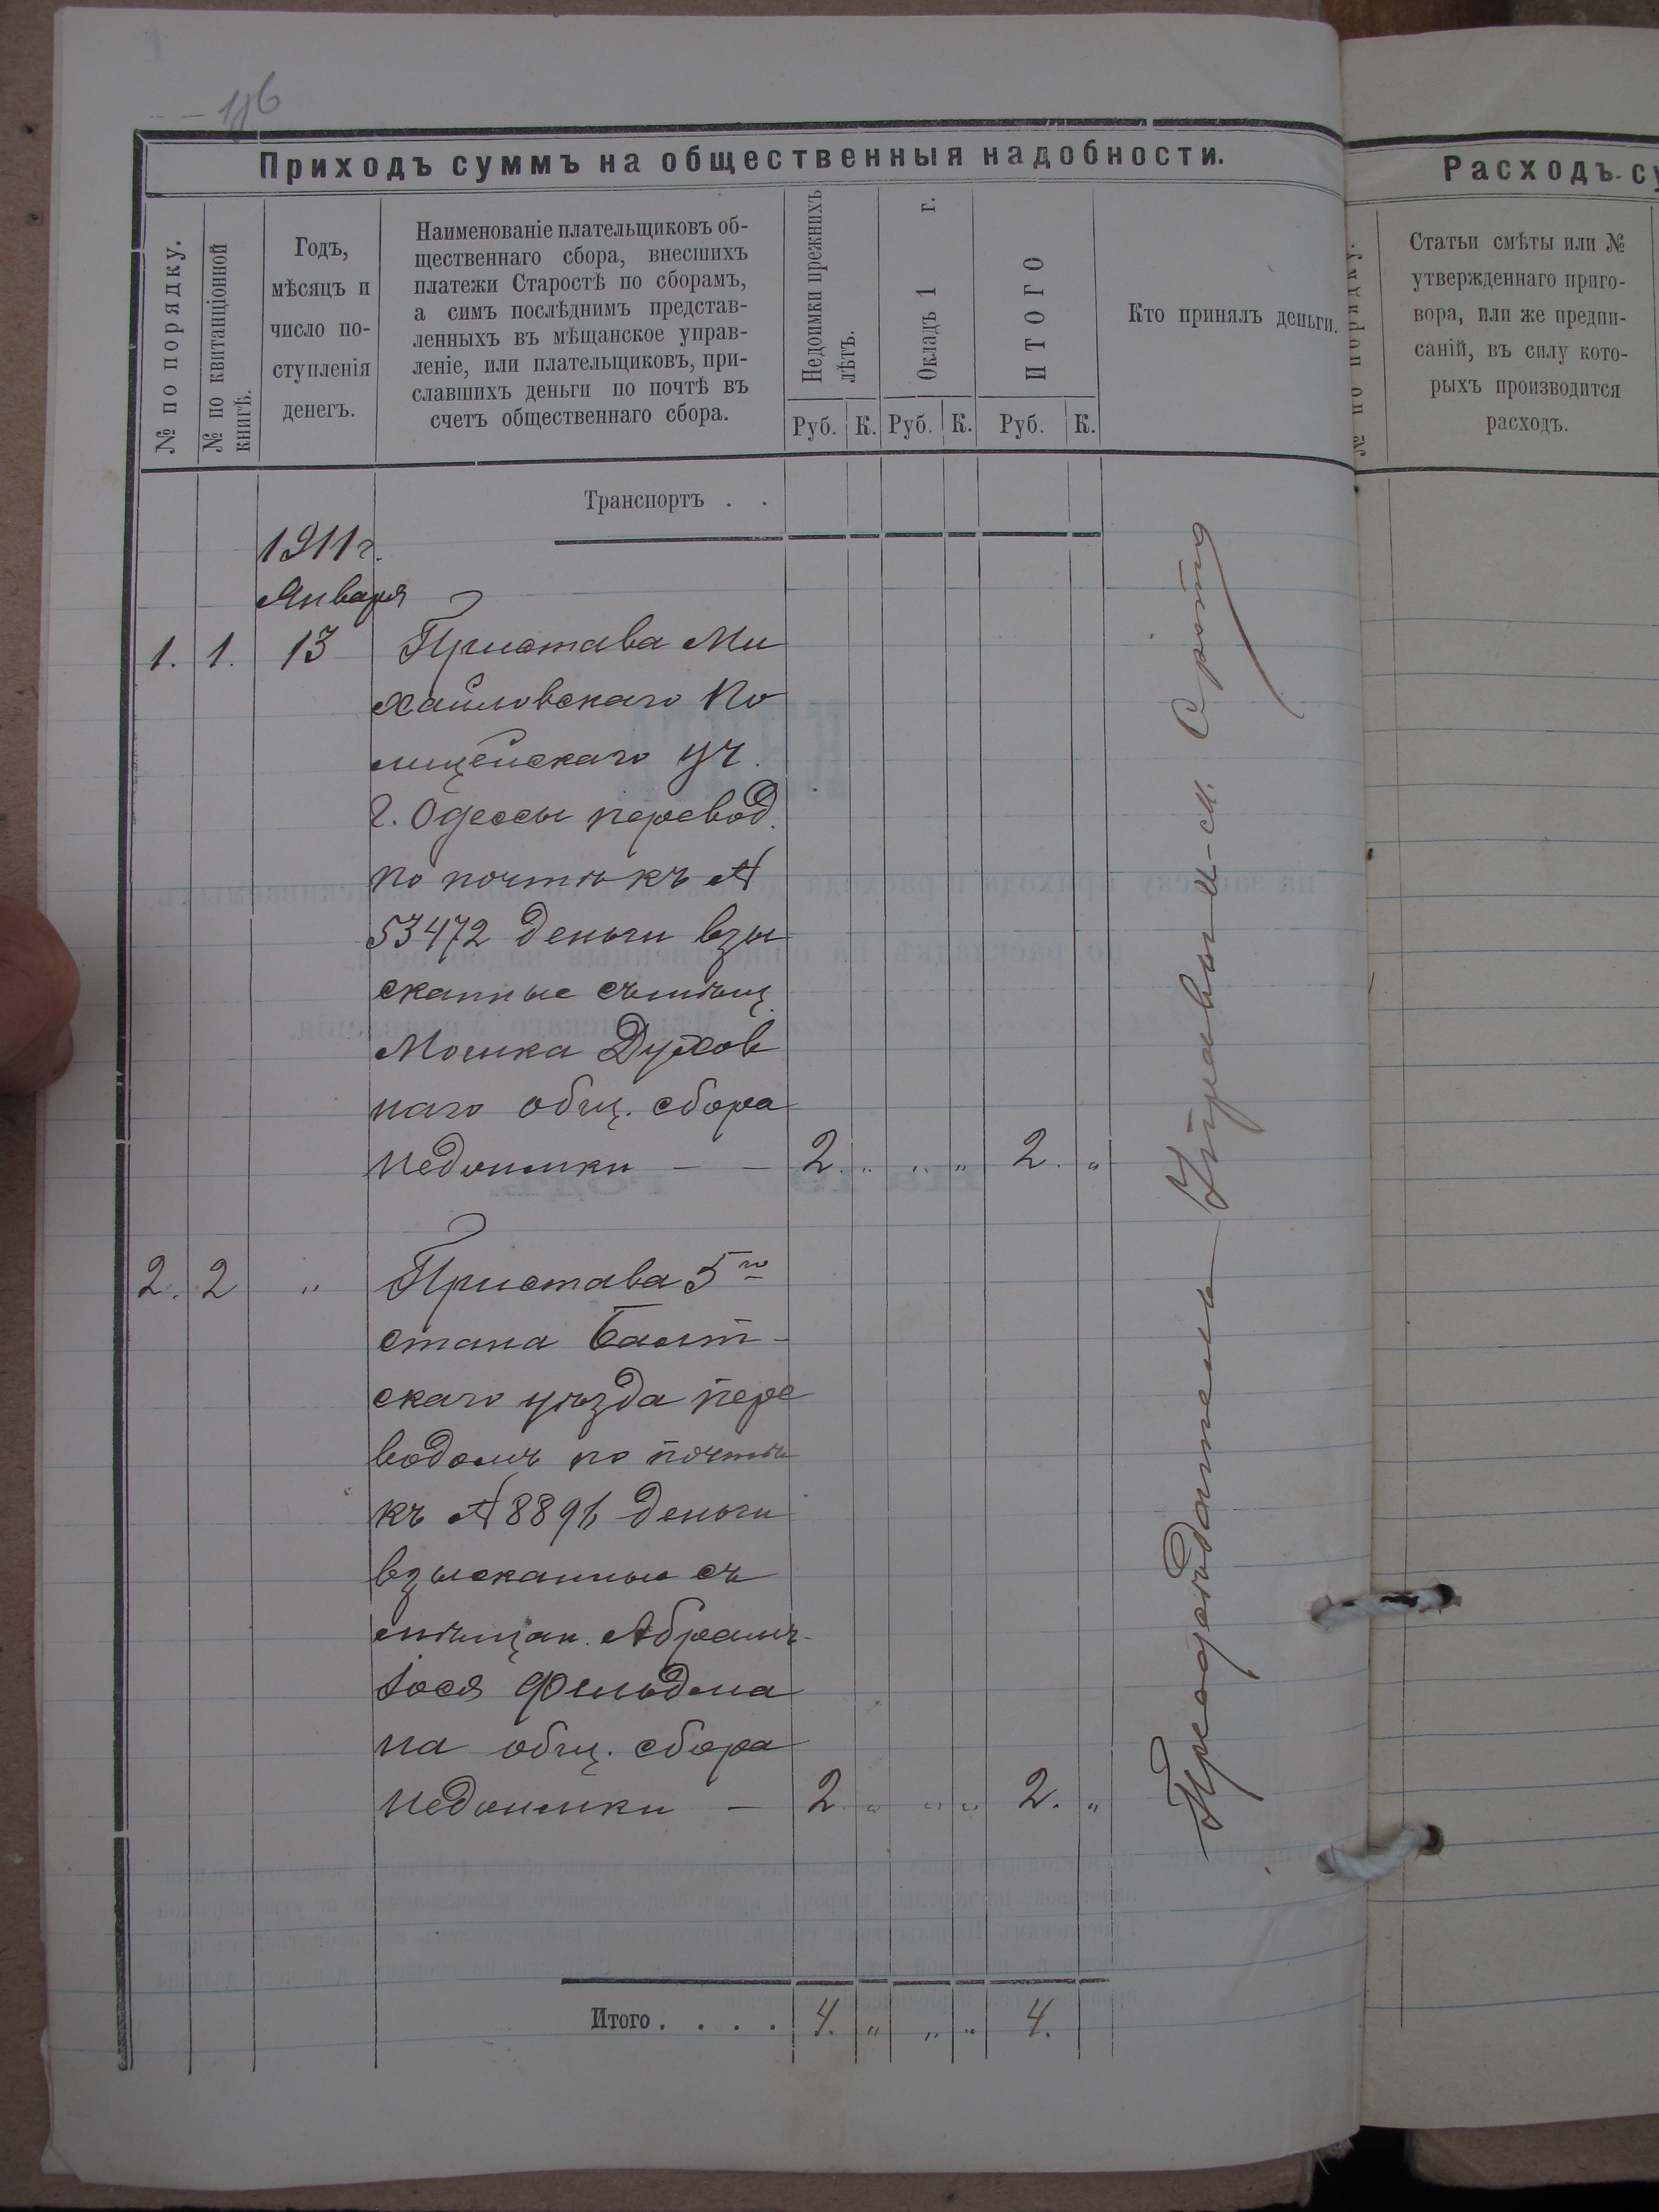 Приходъ суммъ на общественныя надобности.
№ по порядку.
№ по квитанціонной
книгѣ.
Годъ,
мѣсяцъ и
число по-
ступленія
денегъ.
Наименованіе плательщиковъ об-
щественнаго сбора, внесшихъ
платежи Старостѣ по сборамъ,
а симъ послѣднимъ представ-
ленныхъ въ мѣщанское управ-
леніе, или плательщиковъ, при-
славшихъ деньги по почтѣ въ
счетъ общественнаго сбора.
Недоимки прежнихъ
лѣтъ.
Окладъ 1 г.
ИТОГО
Руб. К. Руб. К. Руб. К.
Кто принялъ деньги.
Транспортъ . .
1911 г.
Января
1. 1. 13 Пристава Ми
хайловскаго По
лицейскаго уч.
г. Одессы перевод.
по почтѣ къ №
53472 деньги взы
сканные съ мѣщ.
Мошка Духов
наго общ. сбора
недоимки — — 2. „ „ „ 2. „
2. 2 „ Пристава 5го
стана Балт-
скаго уѣзда пере
водомъ по почтѣ
къ № 8891 деньги
взысканные съ
мѣщан. Абрамъ-
Іося Фельдма
на общ. сбора
недоимки — 2. „ „ „ 2. „
Итого . . . . 4. „ „ „ 4.
Предсѣдатель Управы
Расходъ су
№ по порядку.
Статьи смѣты или №
утвержденнаго приго-
вора, или же предпи-
саній, въ силу кото-
рыхъ производится
расходъ.